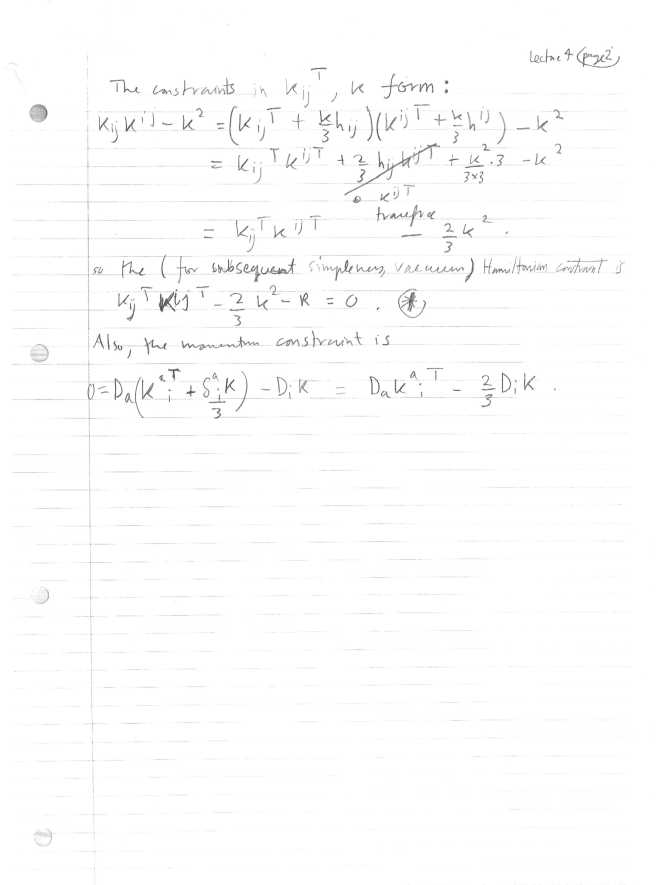 Lecture 4 (page 2)
The constraints in K_ij^T, K form:
K_ij K^ij − K² = (K_ij^T + K/3 h_ij)(K^ij^T + K/3 h^ij) − K²
= K_ij^T K^ij^T + 2/3 h_ij K^ij^T + K²/3×3 · 3 − K²
0 K^ij^T
tracefree
= K_ij^T K^ij^T − 2/3 K².
so the (for subsequent simpleness, vacuum) Hamiltonian constraint is
K_ij^T K^ij^T − 2/3 K² − R = 0 . (*)
Also, the momentum constraint is
0 = D_a(K^a_i^T + δ^a_i K/3) − D_i K = D_a K^a_i^T − 2/3 D_i K .